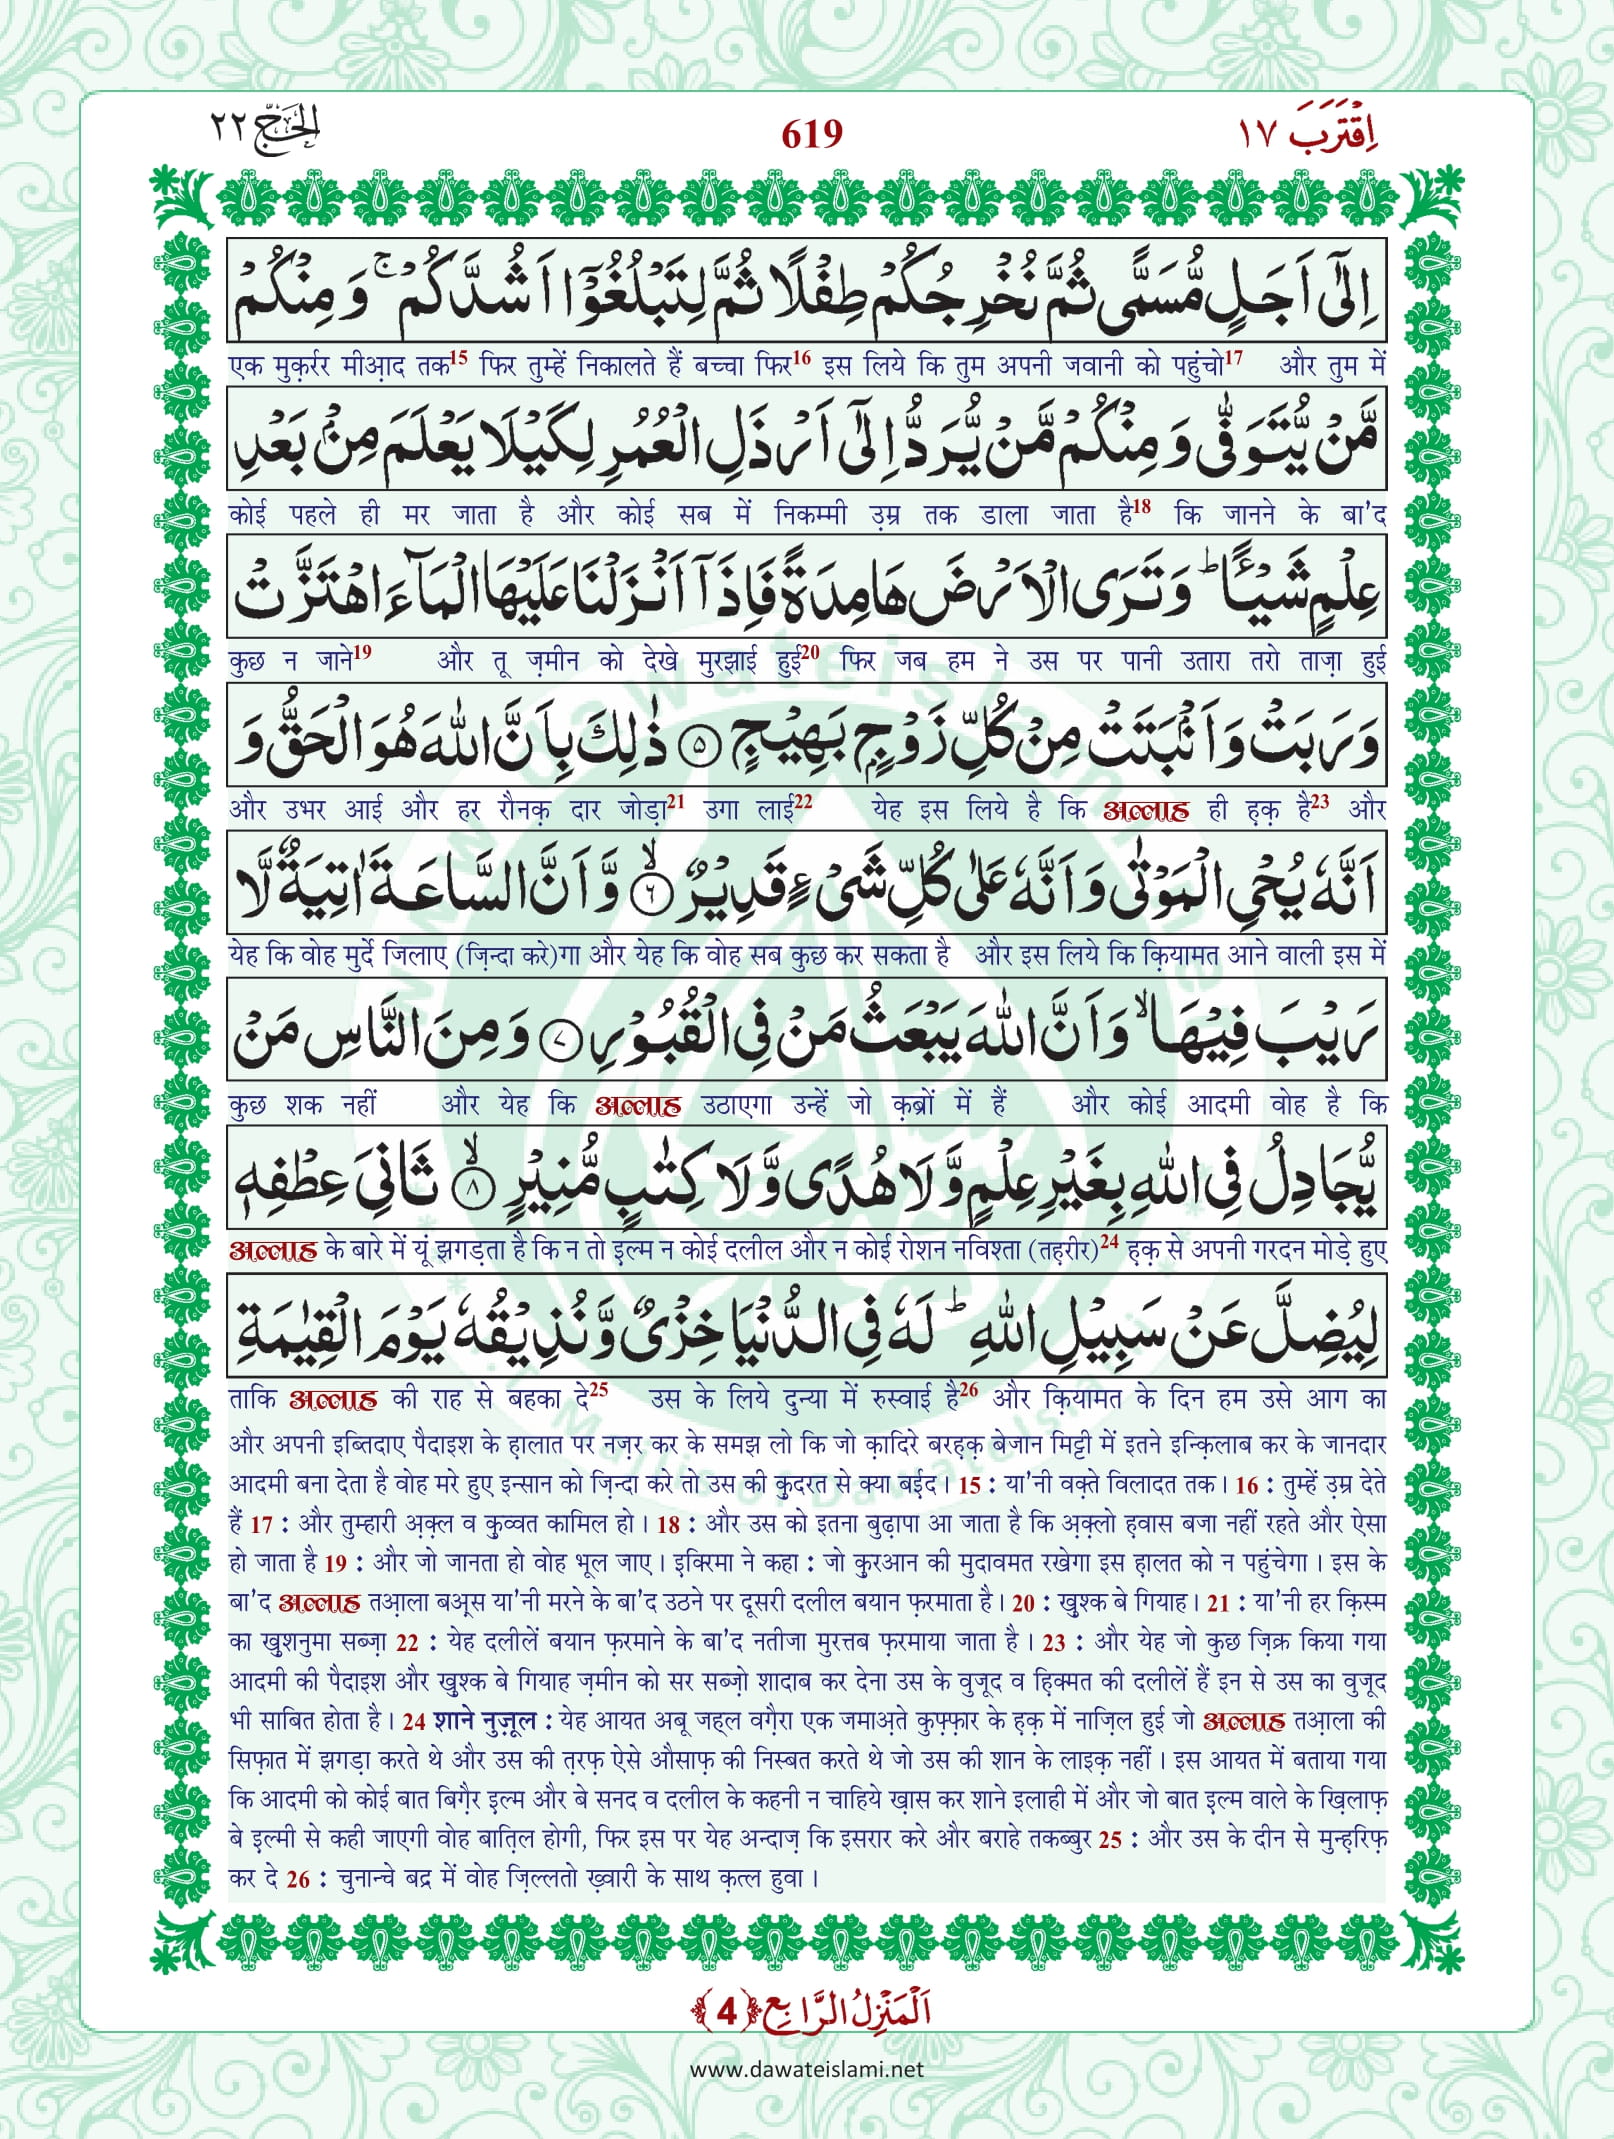 الحج ٢٢
619
اِقْتَرَبَ ١٧
اِلٰۤى اَجَلٍ مُّسَمًّى ثُمَّ نُخْرِجُكُمْ طِفْلًا ثُمَّ لِتَبْلُغُوْۤا اَشُدَّكُمْ ۚ وَ مِنْكُمْ
एक मुक़र्रर मीआ़द तक15 फिर तुम्हें निकालते हैं बच्चा फिर16 इस लिये कि तुम अपनी जवानी को पहुंचो17 और तुम में
مَّنْ یُّتَوَفّٰى وَ مِنْكُمْ مَّنْ یُّرَدُّ اِلٰۤى اَرْذَلِ الْعُمُرِ لِكَیْلَا یَعْلَمَ مِنْۢ بَعْدِ
कोई पहले ही मर जाता है और कोई सब में निकम्मी उ़म्र तक डाला जाता है18 कि जानने के बा'द
عِلْمٍ شَیْــٴًـا ؕ وَ تَرَى الْاَرْضَ هَامِدَةً فَاِذَاۤ اَنْزَلْنَا عَلَیْهَا الْمَآءَ اهْتَزَّتْ
कुछ न जाने19 और तू ज़मीन को देखे मुरझाई हुई20 फिर जब हम ने उस पर पानी उतारा तरो ताज़ा हुई
وَ رَبَتْ وَ اَنْۢبَتَتْ مِنْ كُلِّ زَوْجٍۭ بَهِیْجٍ ۝۵ ذٰلِكَ بِاَنَّ اللّٰهَ هُوَ الْحَقُّ وَ
और उभर आई और हर रौनक़ दार जोड़ा21 उगा लाई22 येह इस लिये है कि अल्लाह ही ह़क़ है23 और
اَنَّهٗ یُحْیِ الْمَوْتٰى وَ اَنَّهٗ عَلٰى كُلِّ شَیْءٍ قَدِیْرٌ ۙ۝۶ وَّ اَنَّ السَّاعَةَ اٰتِیَةٌ لَّا
येह कि वोह मुर्दे जिलाए (ज़िन्दा करे)गा और येह कि वोह सब कुछ कर सकता है और इस लिये कि क़ियामत आने वाली इस में
رَیْبَ فِیْهَا ۙ وَ اَنَّ اللّٰهَ یَبْعَثُ مَنْ فِی الْقُبُوْرِ ۝۷ وَ مِنَ النَّاسِ مَنْ
कुछ शक नहीं और येह कि अल्लाह उठाएगा उन्हें जो क़ब्रों में हैं और कोई आदमी वोह है कि
یُّجَادِلُ فِی اللّٰهِ بِغَیْرِ عِلْمٍ وَّ لَا هُدًى وَّ لَا كِتٰبٍ مُّنِیْرٍ ۙ۝۸ ثَانِیَ عِطْفِهٖ
अल्लाह के बारे में यूं झगड़ता है कि न तो इ़ल्म न कोई दलील और न कोई रोशन नविश्ता (तह़रीर)24 ह़क़ से अपनी गरदन मोड़े हुए
لِیُضِلَّ عَنْ سَبِیْلِ اللّٰهِ ؕ لَهٗ فِی الدُّنْیَا خِزْیٌ وَّ نُذِیْقُهٗ یَوْمَ الْقِیٰمَةِ
ताकि अल्लाह की राह से बहका दे25 उस के लिये दुन्या में रुस्वाई है26 और क़ियामत के दिन हम उसे आग का
और अपनी इब्तिदाए पैदाइश के ह़ालात पर नज़र कर के समझ लो कि जो क़ादिरे बरह़क़ बेजान मिट्टी में इतने इन्क़िलाब कर के जानदार
आदमी बना देता है वोह मरे हुए इन्सान को ज़िन्दा करे तो उस की क़ुदरत से क्या बई़द। 15 : या'नी वक़्ते विलादत तक। 16 : तुम्हें उ़म्र देते
हैं 17 : और तुम्हारी अ़क़्ल व क़ुव्वत कामिल हो। 18 : और उस को इतना बुढ़ापा आ जाता है कि अ़क़्लो ह़वास बजा नहीं रहते और ऐसा
हो जाता है 19 : और जो जानता हो वोह भूल जाए। इक्रिमा ने कहा : जो क़ुरआन की मुदावमत रखेगा इस ह़ालत को न पहुंचेगा। इस के
बा'द अल्लाह तआ़ला बअ़्स या'नी मरने के बा'द उठने पर दूसरी दलील बयान फ़रमाता है। 20 : ख़ुश्क बे गियाह। 21 : या'नी हर क़िस्म
का ख़ुशनुमा सब्ज़ा 22 : येह दलीलें बयान फ़रमाने के बा'द नतीजा मुरत्तब फ़रमाया जाता है। 23 : और येह जो कुछ ज़िक्र किया गया
आदमी की पैदाइश और ख़ुश्क बे गियाह ज़मीन को सर सब्ज़ो शादाब कर देना उस के वुजूद व ह़िक्मत की दलीलें हैं इन से उस का वुजूद
भी साबित होता है। 24 शाने नुज़ूल : येह आयत अबू जह्ल वग़ैरा एक जमाअ़ते कुफ़्फ़ार के ह़क़ में नाज़िल हुई जो अल्लाह तआ़ला की
सिफ़ात में झगड़ा करते थे और उस की त़रफ़ ऐसे औसाफ़ की निस्बत करते थे जो उस की शान के लाइक़ नहीं। इस आयत में बताया गया
कि आदमी को कोई बात बिग़ैर इ़ल्म और बे सनद व दलील के कहनी न चाहिये ख़ास कर शाने इलाही में और जो बात इ़ल्म वाले के ख़िलाफ़
बे इ़ल्मी से कही जाएगी वोह बात़िल होगी, फिर इस पर येह अन्दाज़ कि इसरार करे और बराहे तकब्बुर 25 : और उस के दीन से मुन्ह़रिफ़
कर दे 26 : चुनान्चे बद्र में वोह ज़िल्लतो ख़्वारी के साथ क़त्ल हुवा।
اَلْمَنْزِلُ الرَّابِع ﴿4﴾
www.dawateislami.net